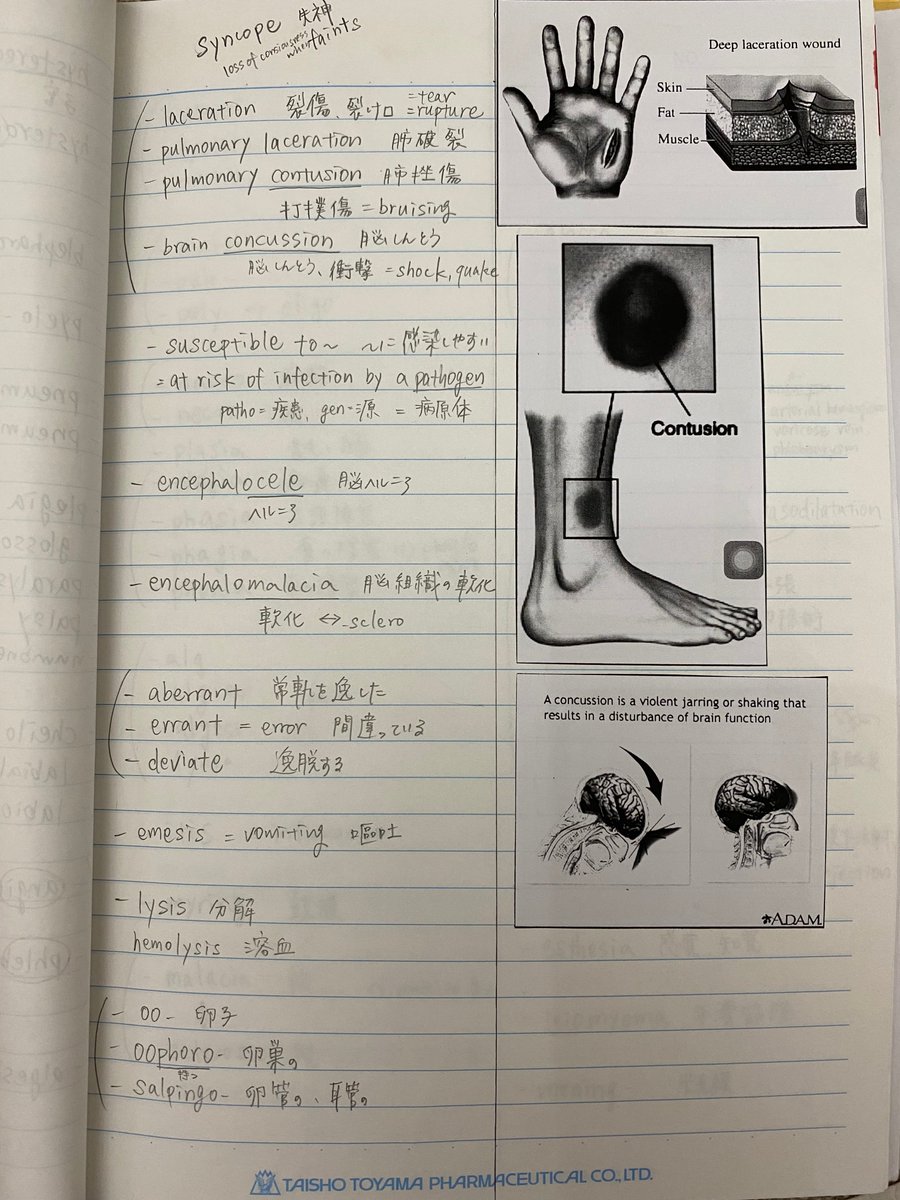 syncope 失神
loss of consiousness
when faints
- laceration 裂傷、裂け口 =tear
=rupture
- pulmonary laceration 肺破裂
- pulmonary contusion 肺挫傷
打撲傷 = bruising
- brain concussion 脳しんとう
脳しんとう、衝撃 = shock, quake
- susceptible to~ ~に感染しやすい
= at risk of infection by a pathogen
patho = 疾患, gen = 源 = 病原体
- encephalocele 脳ヘルニア
ヘルニア
- encephalomalacia 脳組織の軟化
軟化 ⇔ -sclero
- aberrant 常軌を逸した
- errant = error 間違っている
- deviate 逸脱する
- emesis = vomiting 嘔吐
- lysis 分解
hemolysis 溶血
- oo- 卵子
- oophoro- 卵巣の
持つ
- salpingo- 卵管の、耳管の
Deep laceration wound
Skin
Fat
Muscle
Contusion
A concussion is a violent jarring or shaking that
results in a disturbance of brain function
ADAM.
TAISHO TOYAMA PHARMACEUTICAL CO., LTD.